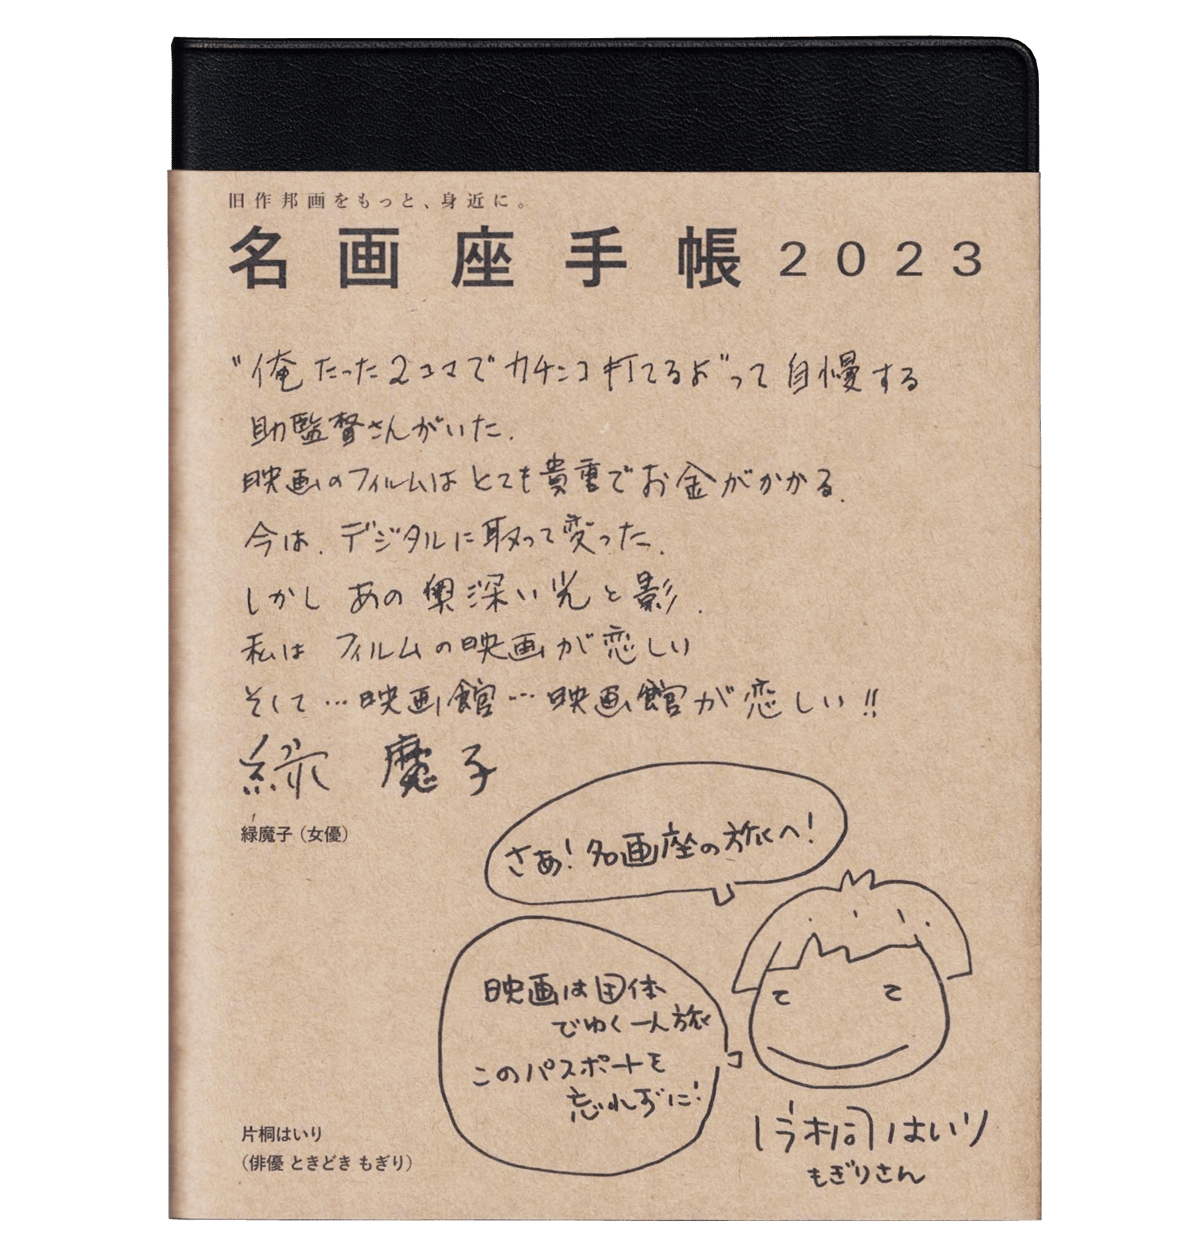 旧作邦画をもっと、身近に。
名画座手帳2023
"俺たった2コマでカチンコ打てるよ"って自慢する
助監督さんがいた.
映画のフィルムはとても貴重でお金がかかる.
今は.デジタルに取って変った.
しかし あの奥深い光と影.
私は フィルムの映画が恋しい
そして…映画館…映画館が恋しい!!
緑 魔子
緑魔子（女優）
さあ!名画座の旅へ!
映画は団体
でゆく一人旅
このパスポートを
忘れずに!
片桐はいり
もぎりさん
片桐はいり
（俳優 ときどき もぎり）